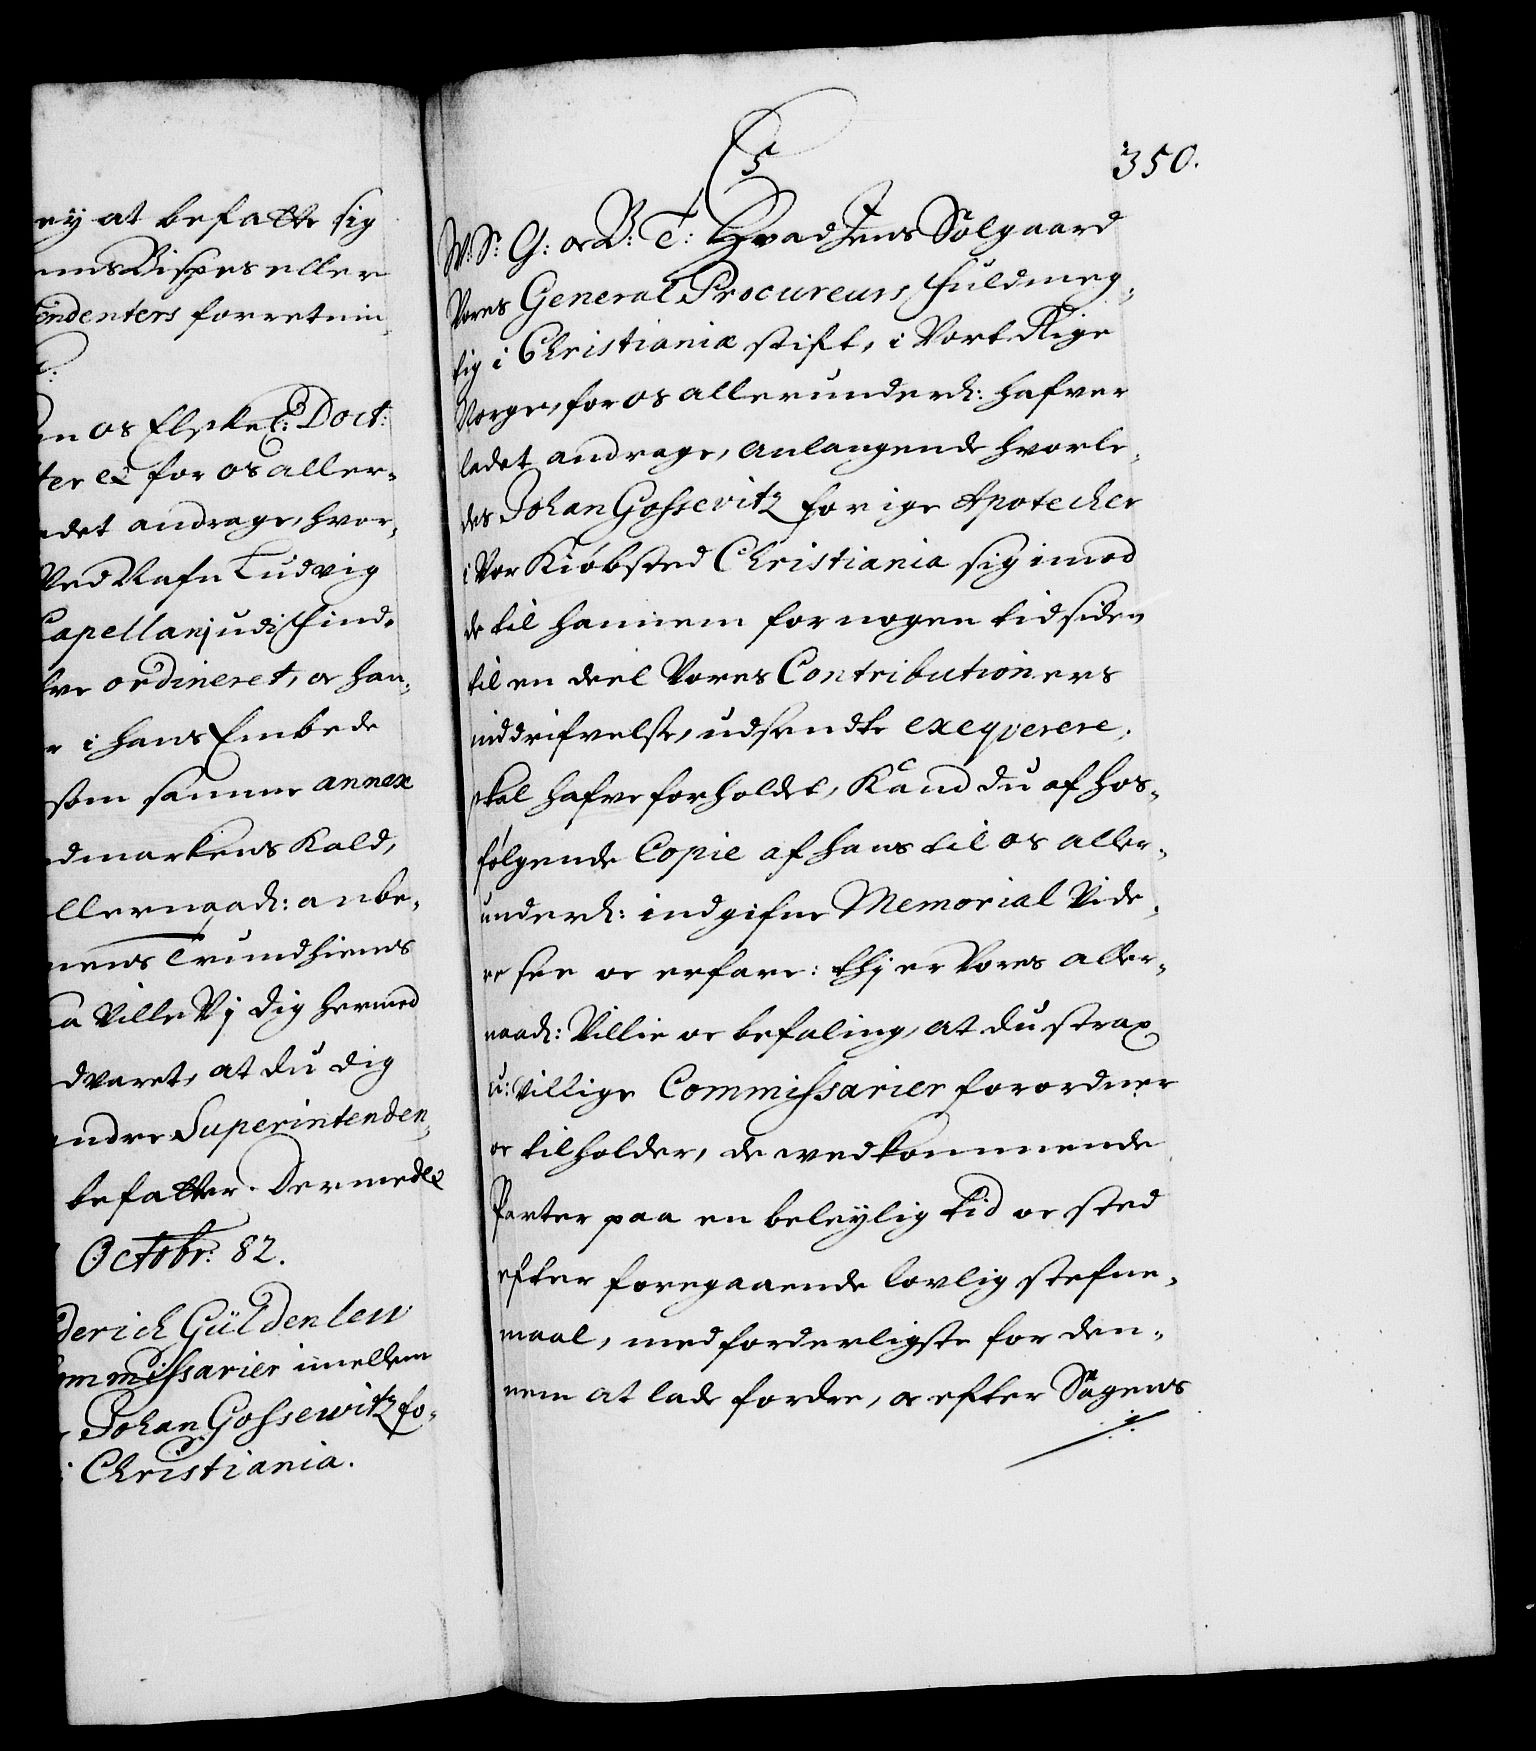 ey at befatte sig
ems Bispes eller
endenters forretnin,
en os Elskel: Doct:
ter etc for os aller-
adet andrage, hvor,
Ved Nafn Ludvig
Capellanj udi Find-
ordineret, oc han,
r i hans Embede
som samme annex
dmarkens Kald,
llernaad: anbe,
nens Trundhiems
a Ville Vj dig hermed
dvaret, at du dig
andre Superintenden,
befatter. Dermed etc
Octobr: 82.
derich Güldenlew
ommissarier imellem
Johan Gossewitz fo,
i Christiania.
350.
C5
W: S: G: oc B: T: Hvad Jens Sölgaard
Vores General Procureurs Fuldmeg,
tig i Christianiæ stift, i Vort Rige
Norge, for os allerunderd: hafver
ladet andrage, anlangende hvorle,
des Johan Gossevitz forige Apotecher
i Vor Kiöbsted Christiania sig imod
de til hannem for nogen tid siden
til en deel Vores Contributioners
inddrifvelse, udsendte exeqverere,
skal hafve forholdet, Kand du af hos,
fölgende Copie af hans til os aller,
underd: indgifne Memorial Vide,
re see oc erfare: thj er Vores aller,
naad: Villie oc befaling, at du strax
u: villige Commissarier forordner
oc tilholder, de vedkommende
Parter paa en beleylig tid oc sted
efter foregaaende lovlig stefne,
maal, med forderligste for den,
nem at lade fordre, oc efter Sagens